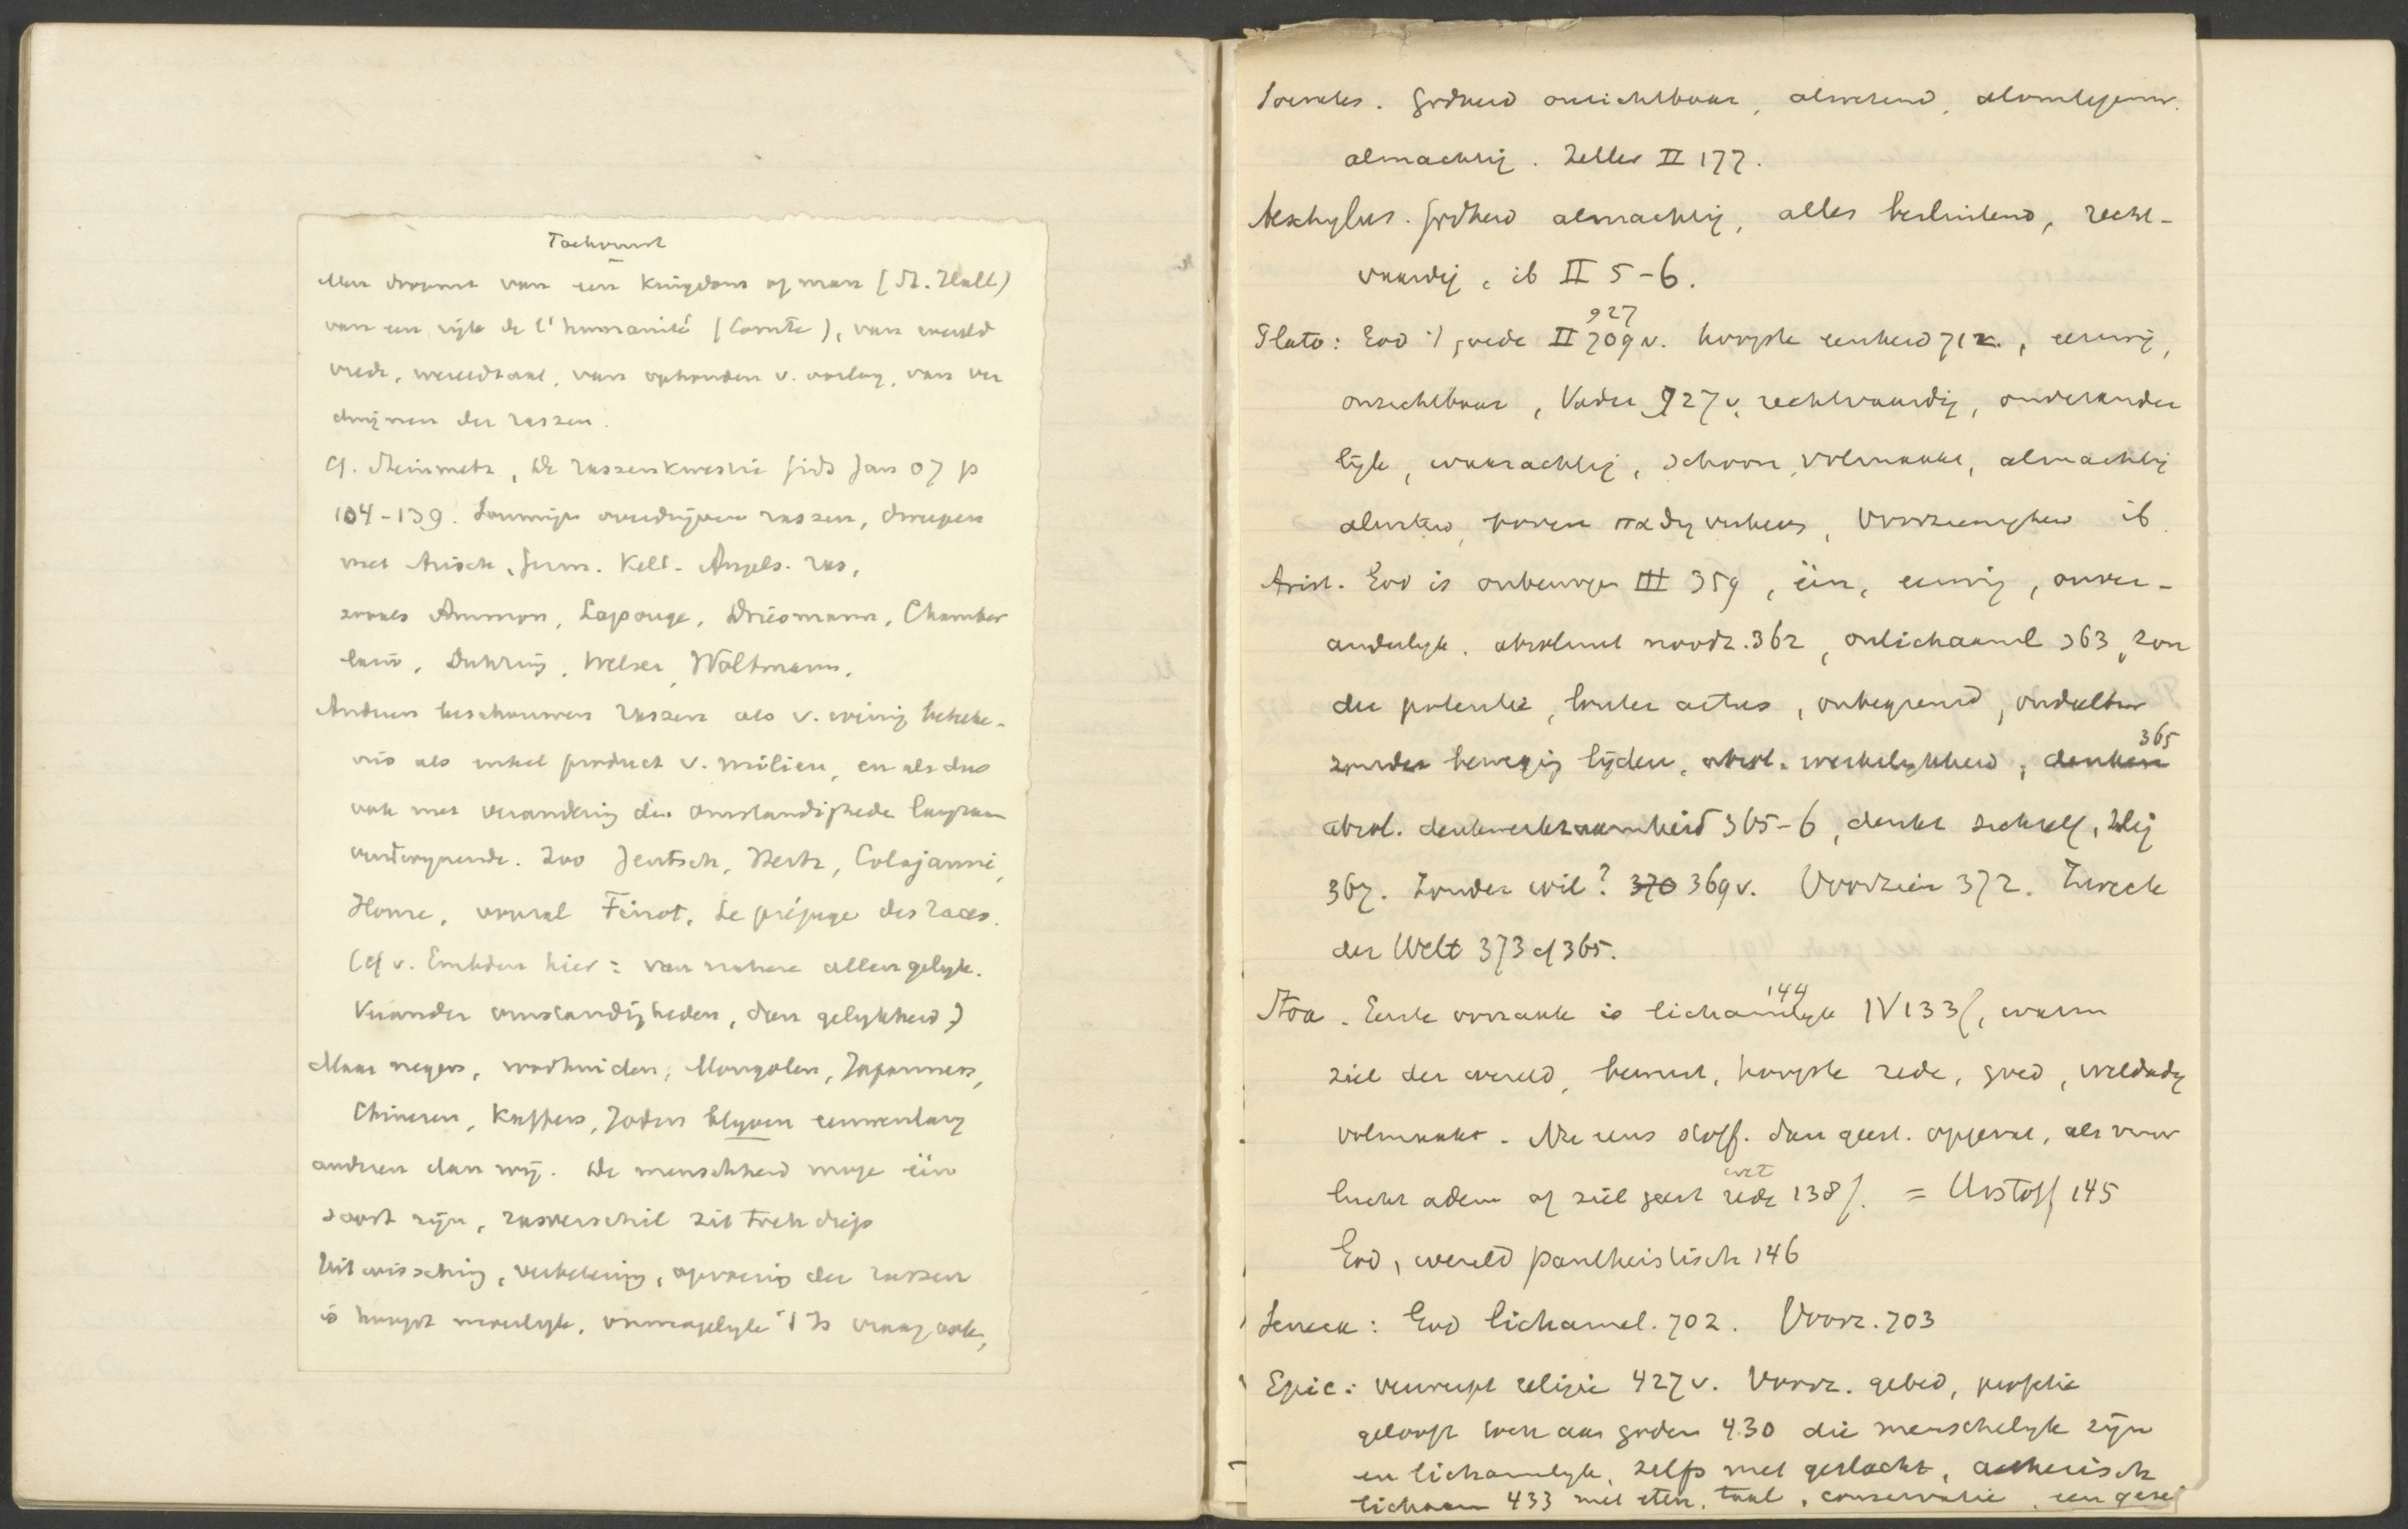 Toekomst
Men droomt van een Kingdom of man (St. Hall)
van een rijk de l'humanité (Comte), van wereld
vrede, wereldtaal, van ophouden v. oorlog, van ver
dwijnen der rassen.
Cf. Steinmetz, De rassenkwestie Gids Jan 07 p
104-139. Sommigen overdrijven rassen, dwepen
met Arisch, Germ. Kelt. Angels. ras,
zooals Ammon, Lapouge, Driesmann, Chamber
lain, Duhring, Wilser, Woltmann.
Anderen beschouwen rassen als v. weinig beteke-
nis als enkel product v. milieu, en als dus
ook met verandering der omstandigheden langzaam
verdwijnende. Zoo Jentsch, Hertz, Colajanni,
Home, vooral Finot, Le préjugé des races.
(Cf v. Embden hier: van nature allen gelijk.
Verander omstandigheden, dan gelijkheid)
Maar negers, roodhuiden, Mongolen, Japanners,
Chineren, Kaffers, Joden blijven eeuwenlang
anderen dan wij. De menschheid moge één
soort zijn, rasverschil zit toch diep
Uitwissching, verbetering, opvoering der rassen
is hoogst moeilijk, onmogelijk 't Is vraag ook,
Socrates. Godheid onzichtbaar, alwetend, alomtegenw.
almachtig. Zeller II 177.
Aeschylus. Godheid almachtig, alles besluitend, recht-
vaardig, ib II 5-6.
927
Plato: God 't goede II 709 v. hoogste eenheid 712., eeuwig,
onzichtbaar, Vader 927 v. rechtvaardig, onverander
lijk, waarachtig, schoon, volmaakt, almachtig
alwetend, boven nadij verheven, Voorzienigheid ib.
Arist. God is onbewogen III 359, één, eeuwig, onver-
anderlijk. absoluut noodz. 362, onlichaaml 363, zon
der potentie, louter actus, onbegrensd, ondeelbar
365
zonder beweging lijden, absol. werkelijkheid, denken
absol. denkwerkzaamheid 365-6, denkt zichzelf, zalig
367. Zonder wil? 370 369 v. Voorzien 372. Zweck
der Welt 373 cf 365.
144
Stoa. Eerste oorzaak is lichamelijk IV 133 f, warm
ziel der wereld, bewust, hoogste rede, goed, weldadig
volmaakt. Nu eens stoff. dan geest. opgevat, als vuur
wet
lucht adem of ziel geest rede 138 f. = Urstoff 145
God, wereld pantheistisch 146
Seneca: God lichamel. 702. Voorz. 703
Epic: verwerpt religie 427 v. Voorz. gebed, profetie
gelooft toch aan goden 430 die menschelijk zijn
en lichamelijk, zelfs met geslacht, aetherisch
lichaam 433 met eten, taal, conservatie, een gezel